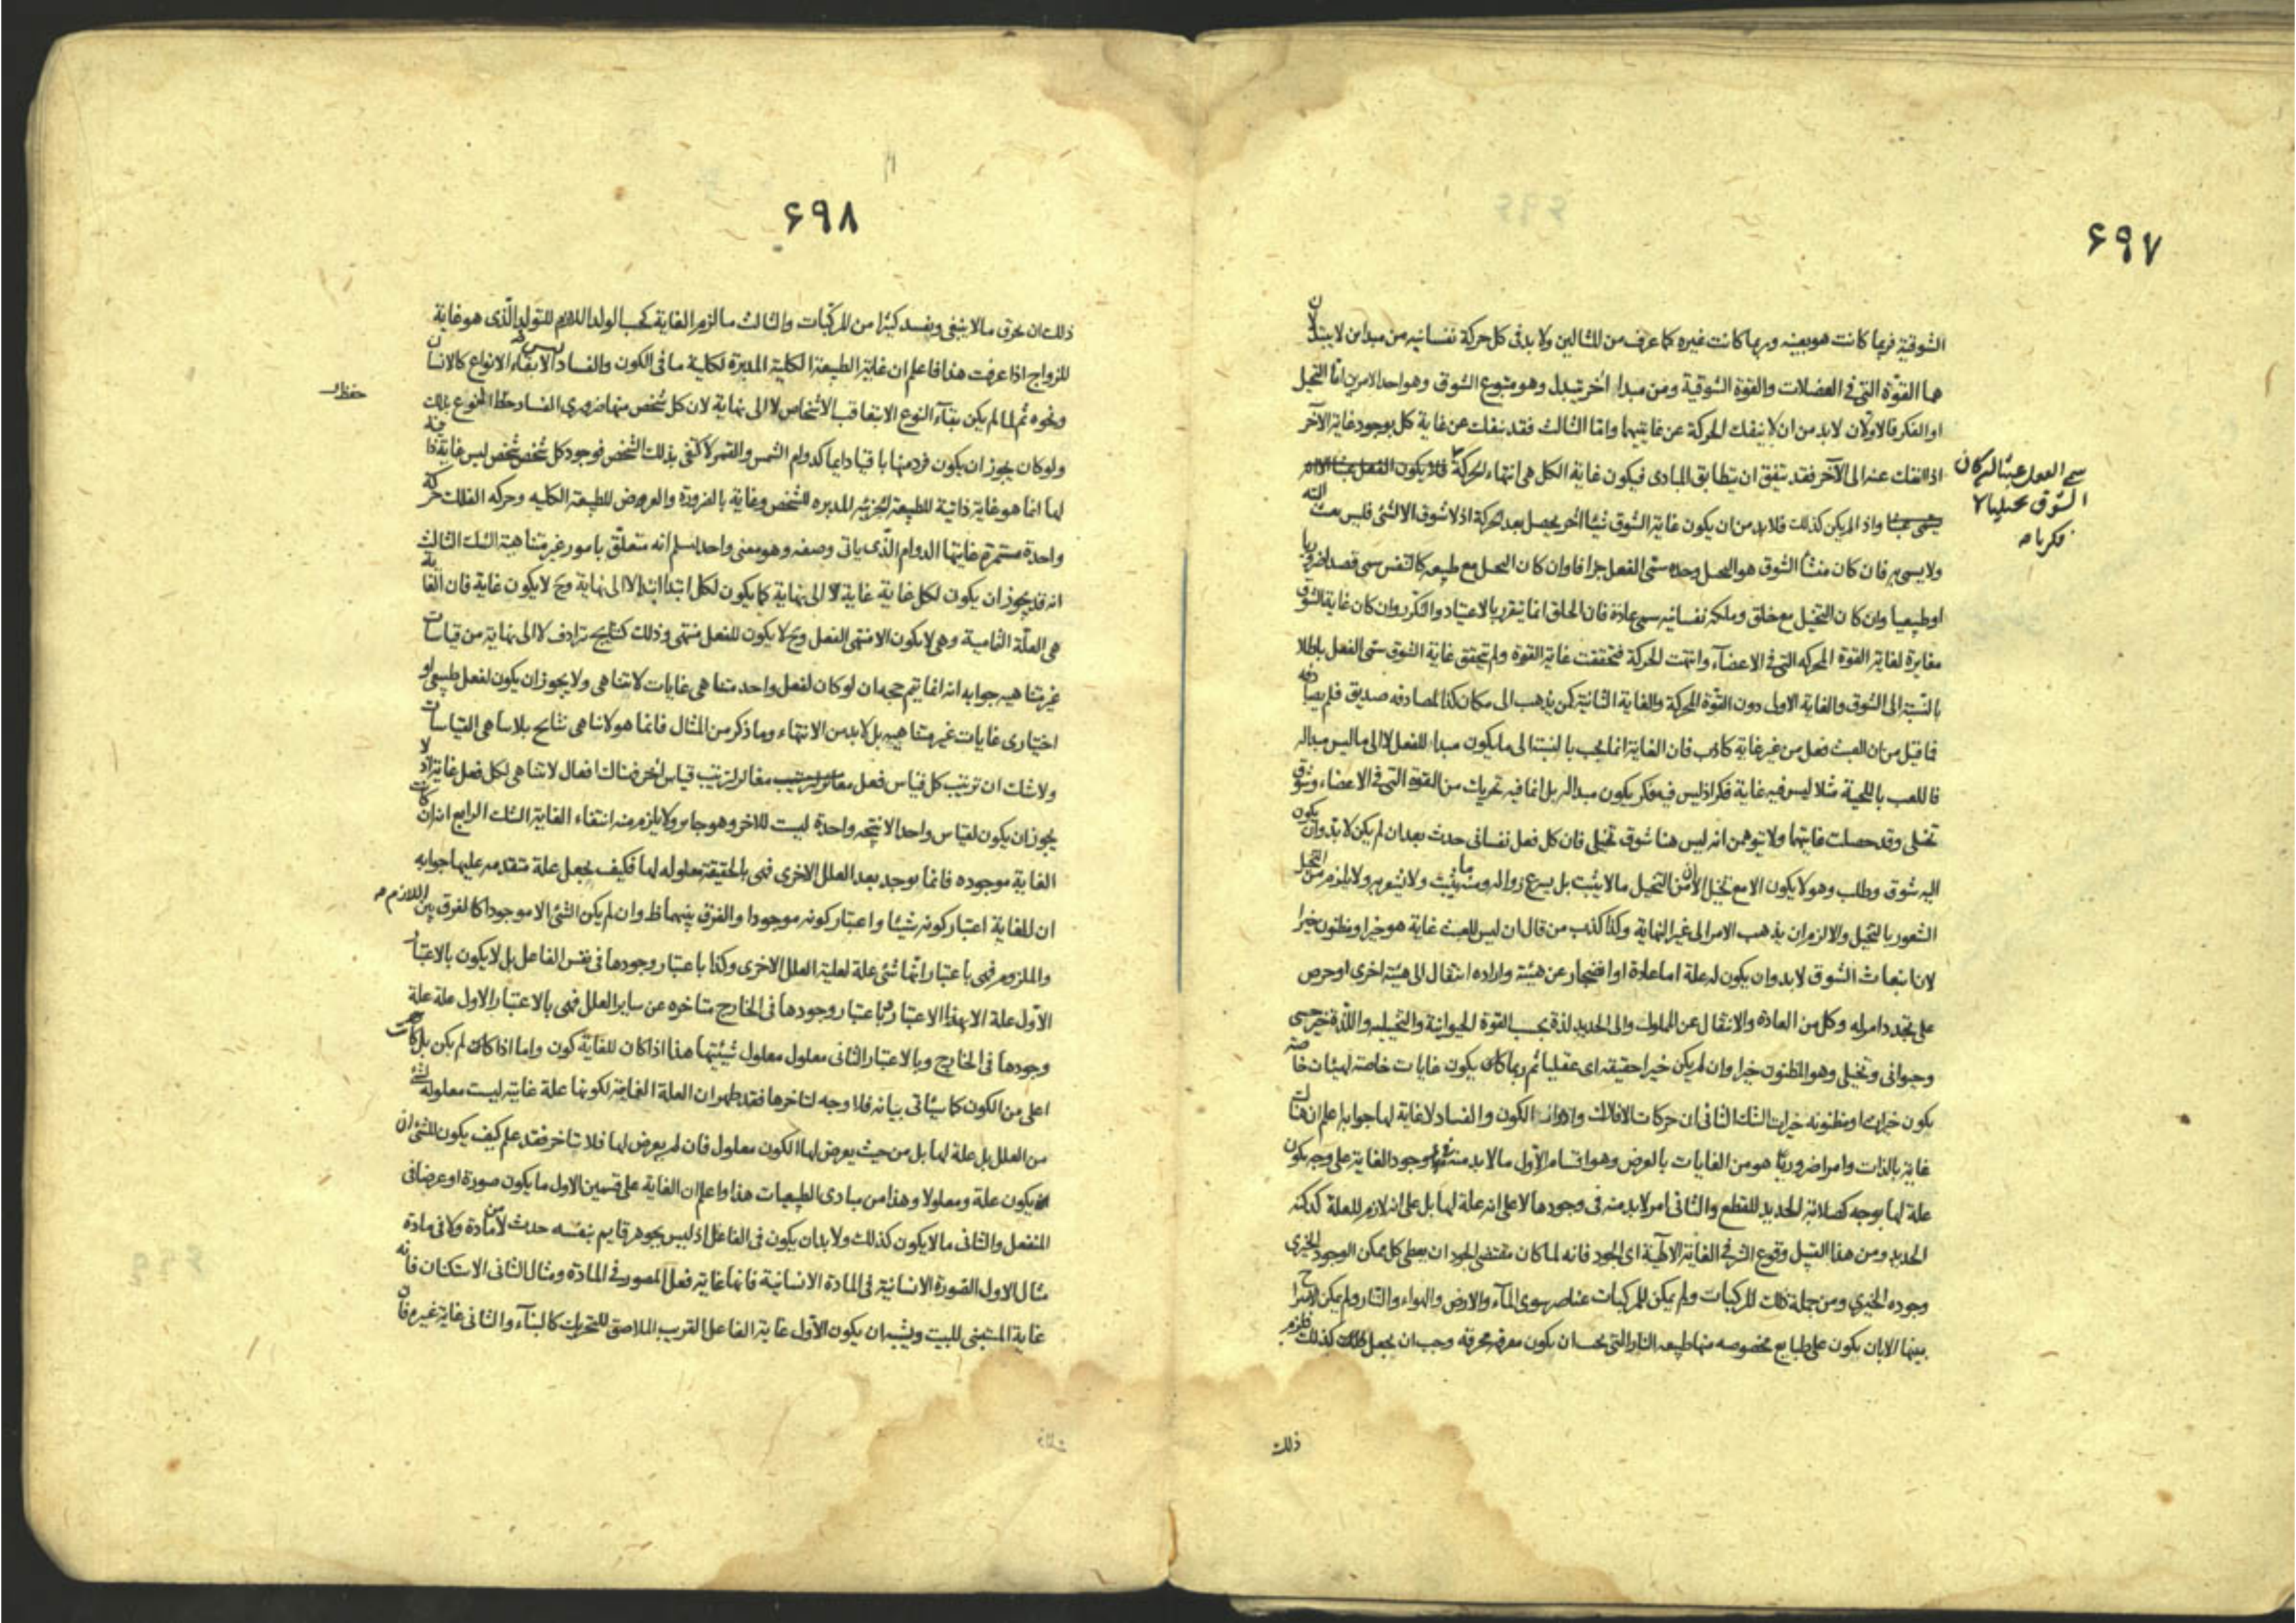 ۶۹۷
الشوقية فربما كانت هو بعينه وربما كانت غيره كما عرف من المثالين ولا بد في كل حركة نفسانيه من مبداين لا يتبدلان
هما القوّة التي في العضلات والقوة الشوقية ومن مبداء اخر يتبدل وهو متبوع الشوق وهو احد الامرين امّا التخيل
او الفكر فالاولان لا بد من ان لا ينفك الحركة عن غايتيهما وامّا الثالث فقد ينفك عن غاية كل بوجود غاية الآخر
اذا انفك عنه الى الآخر فقد يتفق ان يتطابق المبادى فيكون غاية الكل هي انتهاء الحركة
سمى الفعل عبثا ان كان
الشوق تخيليا لا
فكريا صح
واذا لم يكن كذلك فلا بد من ان يكون غاية الشوق شيئا اخر يحصل بعد الحركة اذ لا شوق الا لشئ فليس بعبث البته
ولا يسمى به فان كان منشأ الشوق هو التخيل وحده سمّى الفعل جزافا وان كان التخيل مع طبيعه كالتنفس سمى قصدا ضروريا
او طبيعيا وان كان التخيل مع خلق وملكه نفسانيه سمى عادة فان الخلق انما يتقرر بالاعتياد والتكرر وان كان غاية الشوق
مغايرة لغاية القوة المحركه التي في الاعضآء وانتهت الحركة فتحققت غاية القوة ولم تتحقق غاية الشوق سمّى الفعل باطلا
بالنسبة الى الشوق والغاية الاولى دون القوّة المحركة والغاية الثانية كمن يذهب الى مكان كذا لمصادفه صديق فلم يصادفه
فما قيل من ان العبث فعل من غير غاية كاذب فان الغاية انما يجب بالنسبة الى ما يكون مبداء للفعل لا الى ما ليس مبدا له
فاللعب باللحية مثلا ليس فيه غاية فكر اذ ليس فيه فكر يكون مبدا له بل انما فيه تحريك من القوة التي في الاعضاء وشوق
تخيلى وقد حصلت غايتهما ولا تتوهمن انه ليس هنا شوق تخيلى فان كل فعل نفسانى حدث بعد ان لم يكن لا بد وان يكون
اليه شوق وطلب وهو لا يكون الا مع تخيل الا ان من التخيل ما لا يثبت بل يسرع زواله ومنه ما يثبت ولا يشعر به ولا يلزم من التخيل
الشعور بالتخيل والا لزم ان يذهب الامر الى غير النهاية وكذا كذب من قال ان ليس للعبث غاية هو خير او مظنون خيرا
لان انبعاث الشوق لا بد وان يكون له علة اما عادة او انضجار عن هيئة واراده انتقال الى هيئة اخرى او حرص
على تجدد امر له وكل من العادة والانتقال عن المملول والى الجديد لذة بحسب القوة الحيوانية والتخيليه واللذة خير حسى
وحيوانى وتخيلى وهو المظنون خيرا وان لم يكن خيرا حقيقه اى عقليا ثم ربما كان يكون غايات خاصة لهيئات خاصة
يكون خيرات او مظنونه خيرات الشك الثانى ان حركات الافلاك وادوار الكون والفساد لا غاية لها جوابه اعلم ان هناك
غاية بالذات وامرا ضروريا هو من الغايات بالعرض وهو اقسام الاوّل ما لا بد منه لوجود الغاية على وجه يكون
علة لها بوجه كصلابة الحديد للقطع والثانى امر لا بد منه فى وجودها لا على انه علة لها بل على انه لازم للعلة كدكنه
الحديد ومن هذا القبيل وقوع الشر فى الغاية الالهية اى الجود فانه لما كان مقتضى الجود ان يعطى كل ممكن الوجود الخيرى
وجوده الخيرى ومن جملة ذلك المركبات ولم يمكن للمركبات عناصر سوى المآء والارض والهواء والنار ولم يمكن الامتزاج
بينها الا بان يكون على طبايع مخصوصه منها طبيعه النار التى يجب ان يكون مفرقه محرقه وجب ان يجعل كذلك فلزم
ذلك
۶۹۸
ذلك ان يحرق ما لا ينبغى ويفسد كثيرا من المركبات والثالث ما لزم الغاية كحب الولد اللازم للتولد الّذى هو غاية
للزواج اذا عرفت هذا فاعلم ان غاية الطبيعة الكلية المدبرة لكلية ما فى الكون والفساد ليس الا بقاء الانواع كالانسان
ونحوه ثم لما لم يكن بقآء النوع الا بتعاقب الاشخاص لا الى نهاية لان كل شخص منها ضرورى الفساد حفظ النوع بذلك
حفظ
ولو كان يجوز ان يكون فرد منها باقيا دايما كدوام الشمس والقمر لاكتفى بذلك الشخص فوجود كل شخص شخص ليس غاية ذاتية
لها انما هو غاية ذاتية للطبيعة الجزئيه المدبره للشخص وغاية بالضرورة والعروض للطبيعه الكليه وحركه الفلك حركة
واحدة مستمرة غايتها الدوام الّذى ياتى وصفه وهو معنى واحد نسلم انه متعلّق بامور غير متناهية الشك الثالث
انه قد يجوز ان يكون لكل غاية غاية لا الى نهاية كما يكون لكل ابتداء ابتداء لا الى نهاية وح لا يكون غاية فان الغاية
هى العلّة التمامية وهى لا يكون الا منتهى الفعل وح لا يكون للفعل منتهى وذلك كنتايج تترادف لا الى نهاية من قياسات
غير متناهيه جوابه انه انما يتم حجه ان لو كان لفعل واحد متناهى غايات لا تتناهى ولا يجوز ان يكون لفعل طبيعى او
اختيارى غايات غير متناهيه بل لا بد من الانتهاء وما ذكر من المثال فانما هو لا تناهى نتايج بلا تناهى القياسات
ولا شك ان ترتيب كل قياس فعل مغاير لترتيب قياس اخر فهناك افعال لا تتناهى لكل فعل غاية اذ لا
يجوز ان يكون لقياس واحد الا نتيجه واحدة ليست للاخر وهو جايز ولا يلزم منه انتفاء الغاية الشك الرابع ان كانت
الغاية موجوده فانما يوجد بعد العلل الاخرى فهى بالحقيقة معلوله لها فكيف يجعل علة متقدمه عليها جوابه
ان للغاية اعتبار كونه شيئا واعتبار كونه موجودا والفرق بينهما ظ وان لم يكن الشئ الا موجودا كالفرق بين اللازم
والملزوم فهى باعتبار انّها شئ علة لعلية العلل الاخرى وكذا باعتبار وجودها فى نفس الفاعل بل لا يكون بالاعتبار
الاوّل علة الا بهذا الاعتبار وباعتبار وجودها فى الخارج متاخره عن ساير العلل فهى بالاعتبار الاول علة علة
وجودها فى الخارج وبالاعتبار الثانى معلول معلول شيئيتها هذا اذا كان للغاية كون واما اذا كان لم يكن بل كانت
اعلى من الكون كما سيأتى بيانه فلا وجه لتاخرها فقد ظهر ان العلة الغائية لكونها علة غاية ليست معلولة لشئ
من العلل بل علة لها بل من حيث يعرض لها الكون معلول فان لم يعرض لها فلا تتاخر فقد علم كيف يكون للشئ ان
يكون علة ومعلولا وهذا من مبادى الطبيعيات هذا واعلم ان الغاية على قسمين الاول ما يكون صورة او عرضا فى
المنفعل والثانى ما لا يكون كذلك ولا بد ان يكون فى الفاعل اذ ليس بجوهر قايم بنفسه حدث لا من مادة ولا فى مادة
مثال الاول الصورة الانسانية فى المادة الانسانية فانها غاية فعل المصور فى المادة ومثال الثانى الاستكنان فانه
غاية المستبنى للبيت ويشبه ان يكون الاوّل غاية الفاعل القريب الملاصق للتحريك كالبنآء والثانى غاية غيره فان